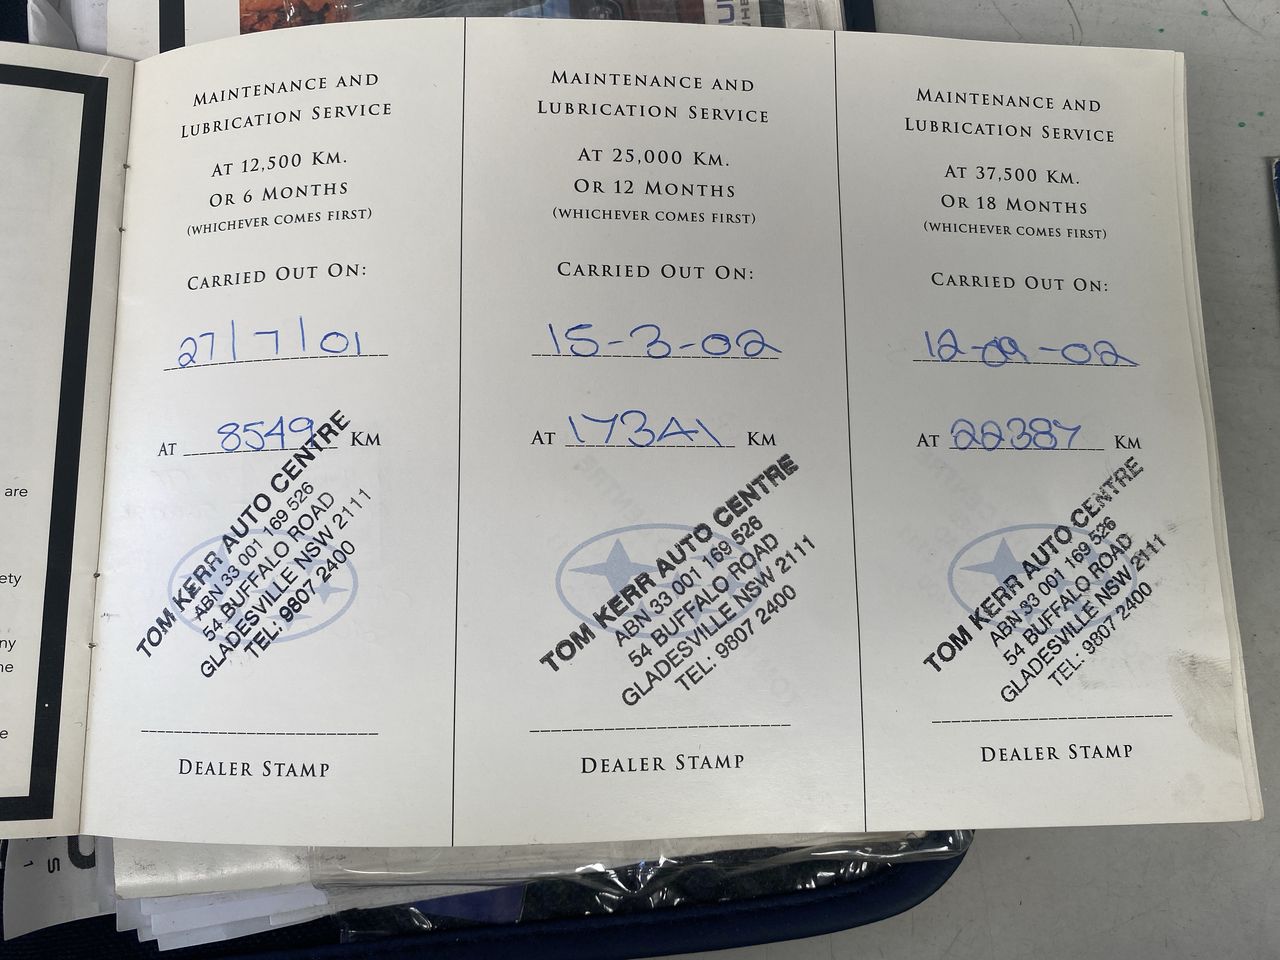 MAINTENANCE AND
LUBRICATION SERVICE
AT 12,500 KM.
OR 6 MONTHS
(WHICHEVER COMES FIRST)
CARRIED OUT ON:
27/7/01
AT 8549 KM
TOM KERR AUTO CENTRE
ABN 33 001 169 526
54 BUFFALO ROAD
GLADESVILLE NSW 2111
TEL: 9807 2400
DEALER STAMP
MAINTENANCE AND
LUBRICATION SERVICE
AT 25,000 KM.
OR 12 MONTHS
(WHICHEVER COMES FIRST)
CARRIED OUT ON:
15-3-02
AT 17341 KM
TOM KERR AUTO CENTRE
ABN 33 001 169 526
54 BUFFALO ROAD
GLADESVILLE NSW 2111
TEL: 9807 2400
DEALER STAMP
MAINTENANCE AND
LUBRICATION SERVICE
AT 37,500 KM.
OR 18 MONTHS
(WHICHEVER COMES FIRST)
CARRIED OUT ON:
12-09-02
AT 22387 KM
TOM KERR AUTO CENTRE
ABN 33 001 169 526
54 BUFFALO ROAD
GLADESVILLE NSW 2111
TEL: 9807 2400
DEALER STAMP
are